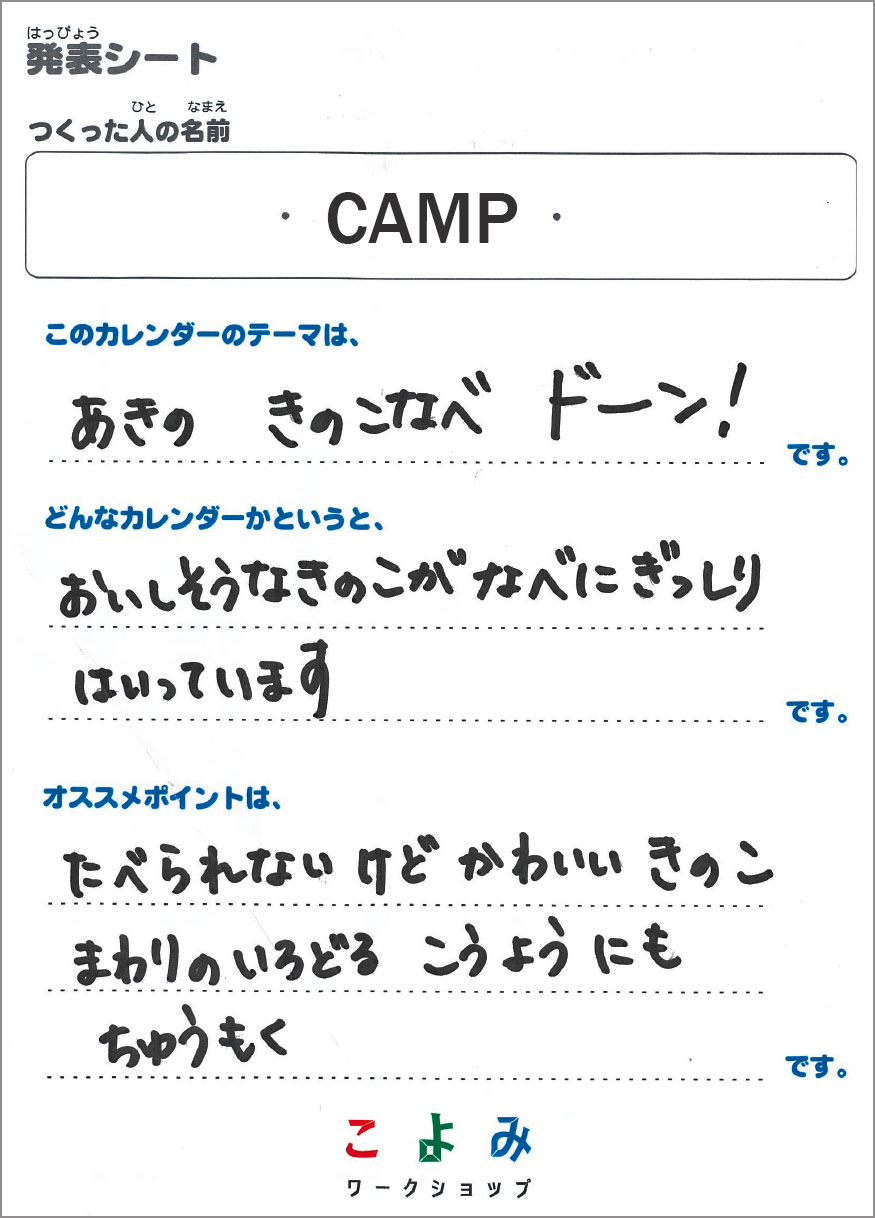 はっぴょう
発表シート
ひと なまえ
つくった人の名前
・ CAMP ・
このカレンダーのテーマは、
あきの きのこなべ ドーン!
です。
どんなカレンダーかというと、
おいしそうなきのこが なべに ぎっしり
はいっています
です。
オススメポイントは、
たべられない けど かわいい きのこ
まわりの いろどる こうよう にも
ちゅうもく
です。
こよみ
ワークショップ